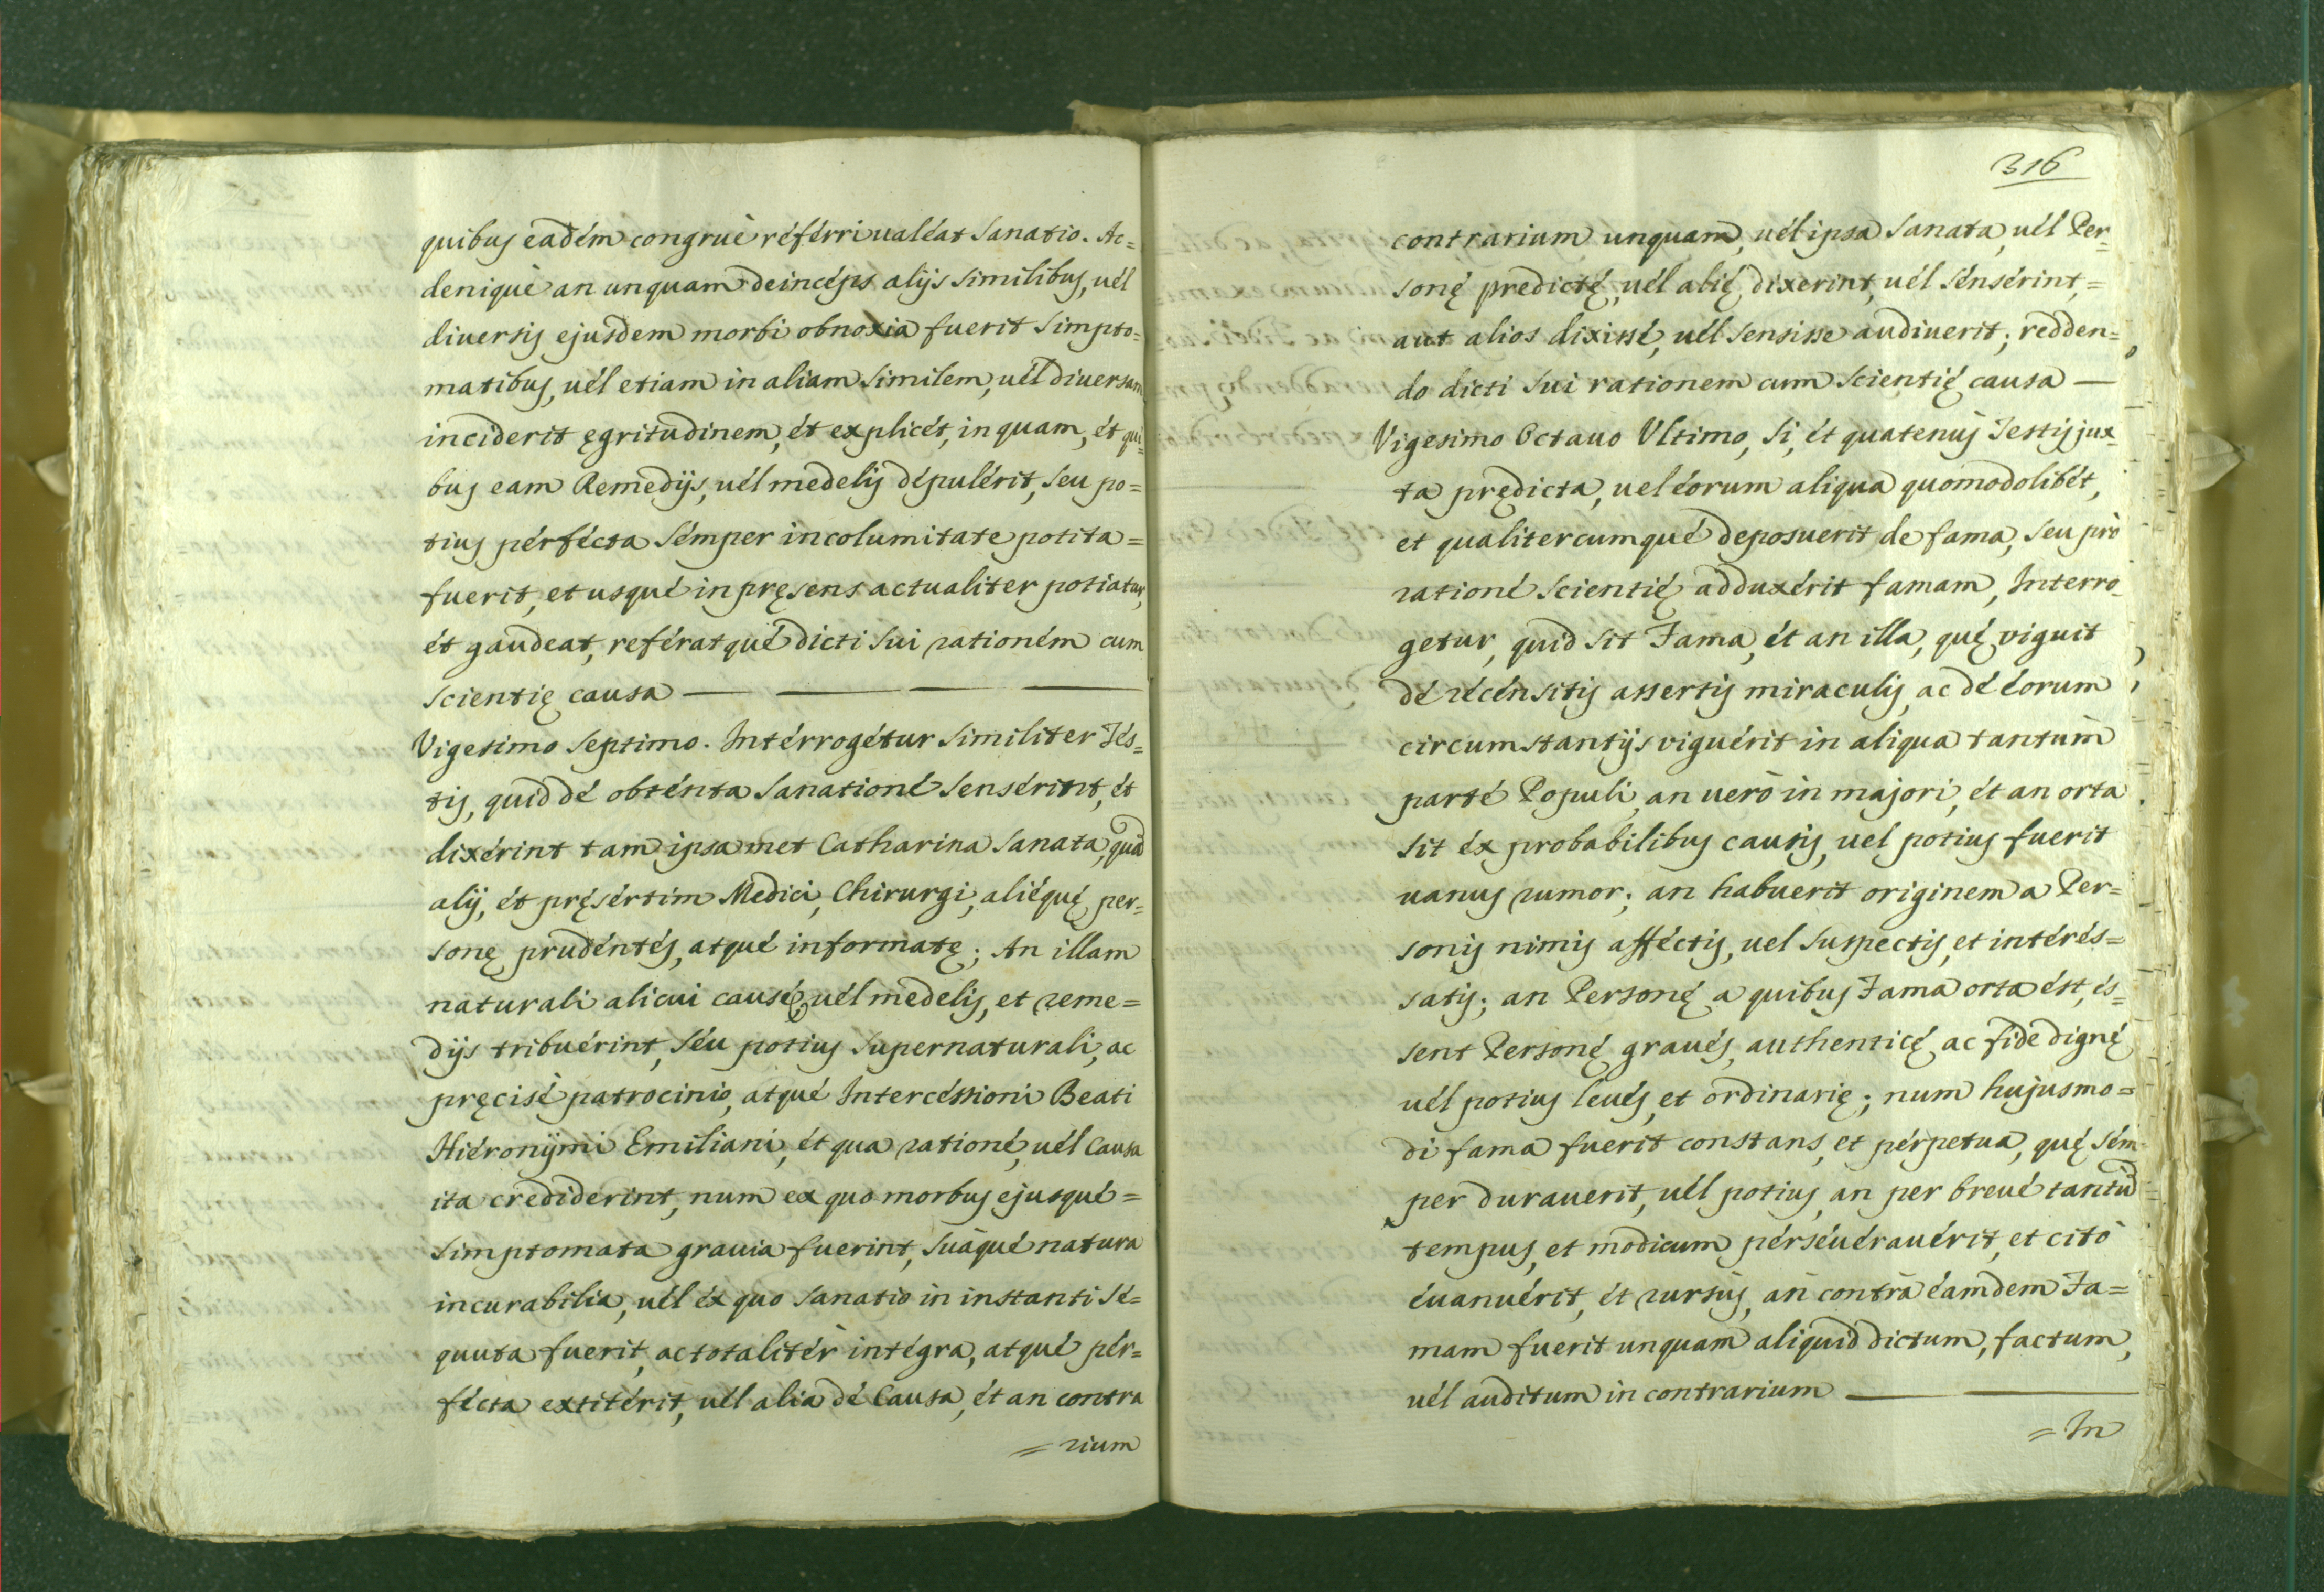 quibus eadém congruè réferri ualéat Sanatio. Ac=
deniquè an unquam deincéps alijs similibus, uél
diuersis ejusdem morbi obnoxia fuerit Simpto=
matibus, uél etiam in aliam similem, uél diuersam
inciderit ęgritudinem, ét explicét, in quam, ét qui=
bus eam Remedijs, uél medelis dépulérit, seu po=
tius pérfécta sémper incolumitate potita=
fuerit, et usqué in pręsens actualiter potiatur,
ét gaudeat, reférat qué dicti sui rationém cum
scientię causa
Vigesimo Septimo. Intérrogétur similiter Tés=
tis, quid dé obténta Sanationé Sensérint, ét
dixérint tam ipsamet Catharina Sanata, quã
alij, ét pręsértim Medici, Chirurgi, aliéquę per=
sonę prudéntés, atqué informatę; An illam
naturali alicui causę, uél medelis, et reme=
dijs tribuérint, séu potius Supernaturali, ac
pręcisé patrocinio, atqué Intercéssioni Beati
Hiéronijmi Emiliani, ét qua rationé, uél Causa
ita crediderint, num ex quo morbus ejusqué=
Simptomata grauia fuerint, suàqué natura
incurabilia, uél éx quo Sanatio in instanti sé=
quuta fuerit, ac totalitér intégra, atqué pér=
fécta extitérit, uél alia dé Causa, ét an contra
= rium
316
contrarium unquam, uél ipsa Sanata, uél Per=
sonę predictę, uél alię dixerint, uél sénsérint,=
aut alios dixissé, uél sensisse audiuerit; redden=
do dicti sui rationem cum Scientię causa
Vigesimo Octauo Ultimo, Si, ét quatenus Testis jux=
ta prędicta, uel éorum aliqua quomodolibét,
et qualitercumqué deposuerit de fama, seu prò
rationé scientię adduxérit famam, Interro=
getur, quid sit Fama, ét an illa, quę viguit
dé récénsitis assertis miraculis, ac dé éorum
circumstantijs viguérit in aliqua tantùm
parté Populi, an uerò in majori, ét an orta
sit éx probabilibus causis, uel potius fuerit
uanus rumor; an habuerit originem a Per=
sonis nimis afféctis, uel suspectis, et intérés=
satis; an Personę a quibus Fama orta ést, és=
sent Personę graués, authenticę ac fide dignę
uél potius leués, et ordinarię; num hujusmo=
di fama fuerit constans, et pérpetua, quę sém=
per durauerit, uél potius, an per breué tantũ
tempus, et modicum pérséuérauérit, et citò
éuanuérit, ét rursùs, an contrà éamdem Fa=
mam fuerit unquam aliquid dictum, factum,
uél auditum in contrarium
= In